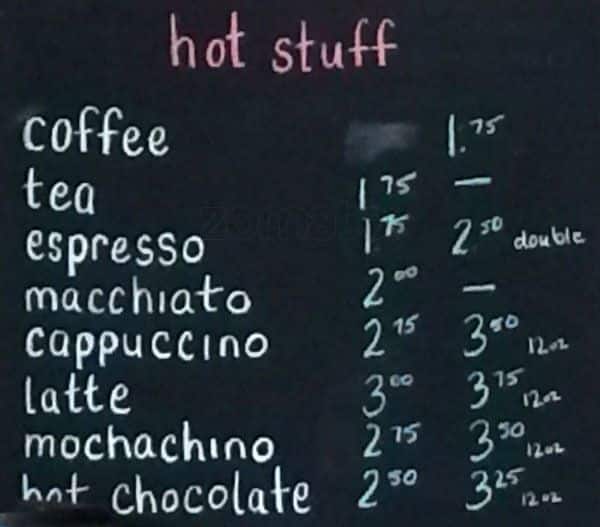 hot stuff
coffee 1.75
tea 1 75 —
espresso 1 75 2 50 double
macchiato 2 00 —
cappuccino 2 75 3 50 12oz
latte 3 00 3 75 12oz
mochachino 2 75 3 50 12oz
hot chocolate 2 50 3 25 12oz